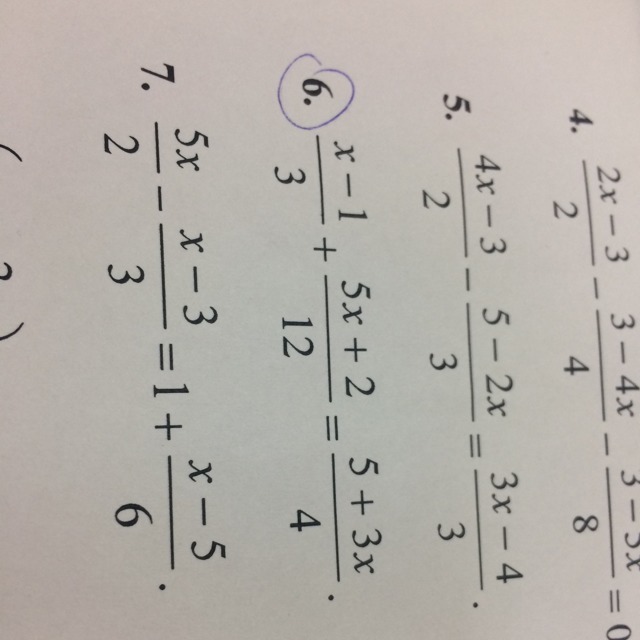 4. \frac{2x-3}{2} - \frac{3-4x}{4} - \frac{3-5x}{8} = 0
5. \frac{4x-3}{2} - \frac{5-2x}{3} = \frac{3x-4}{3}.
6. \frac{x-1}{3} + \frac{5x+2}{12} = \frac{5+3x}{4}.
7. \frac{5x}{2} - \frac{x-3}{3} = 1 + \frac{x-5}{6}.